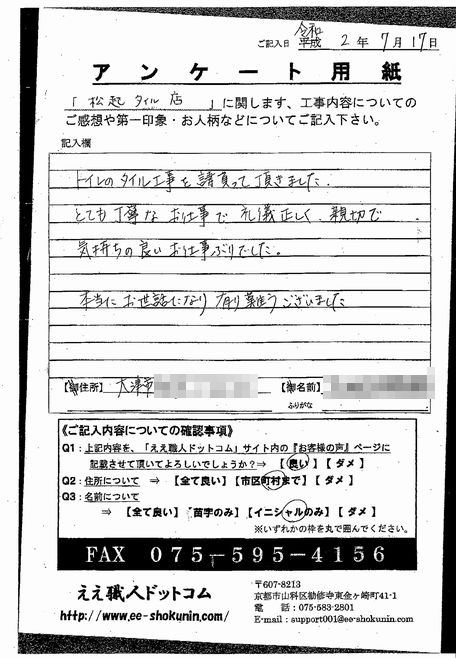 令和
ご記入日 平成 2年 7月 17日
アンケート用紙
「 松起タイル店 」に関します、工事内容についての
ご感想や第一印象・お人柄などについてご記入下さい。
記入欄
トイレのタイル工事を請負って頂きました。
とても丁寧なお仕事で 礼儀正しく、親切で
気持ちの良いお仕事ぶりでした。
本当にお世話になり有り難うございました
【御住所】 大津市
【御名前】
ふりがな
《ご記入内容についての確認事項》
Q1：上記内容を、「ええ職人ドットコム」サイト内の『お客様の声』ページに
記載させて頂いてよろしいでしょうか？⇒ 【 良い 】【 ダメ 】
Q2：住所について ⇒ 【全て良い】【市区町村まで】【 ダメ 】
Q3：名前について
⇒ 【全て良い】【苗字のみ】【イニシャルのみ】【 ダメ 】
※いずれかの枠を丸で囲んでください。
FAX 075-595-4156
ええ職人ドットコム
http://www.ee-shokunin.com/
〒607-8213
京都市山科区勧修寺東金ヶ崎町41-1
電　話：075-583-2801
E-mail：support001@ee-shokunin.com